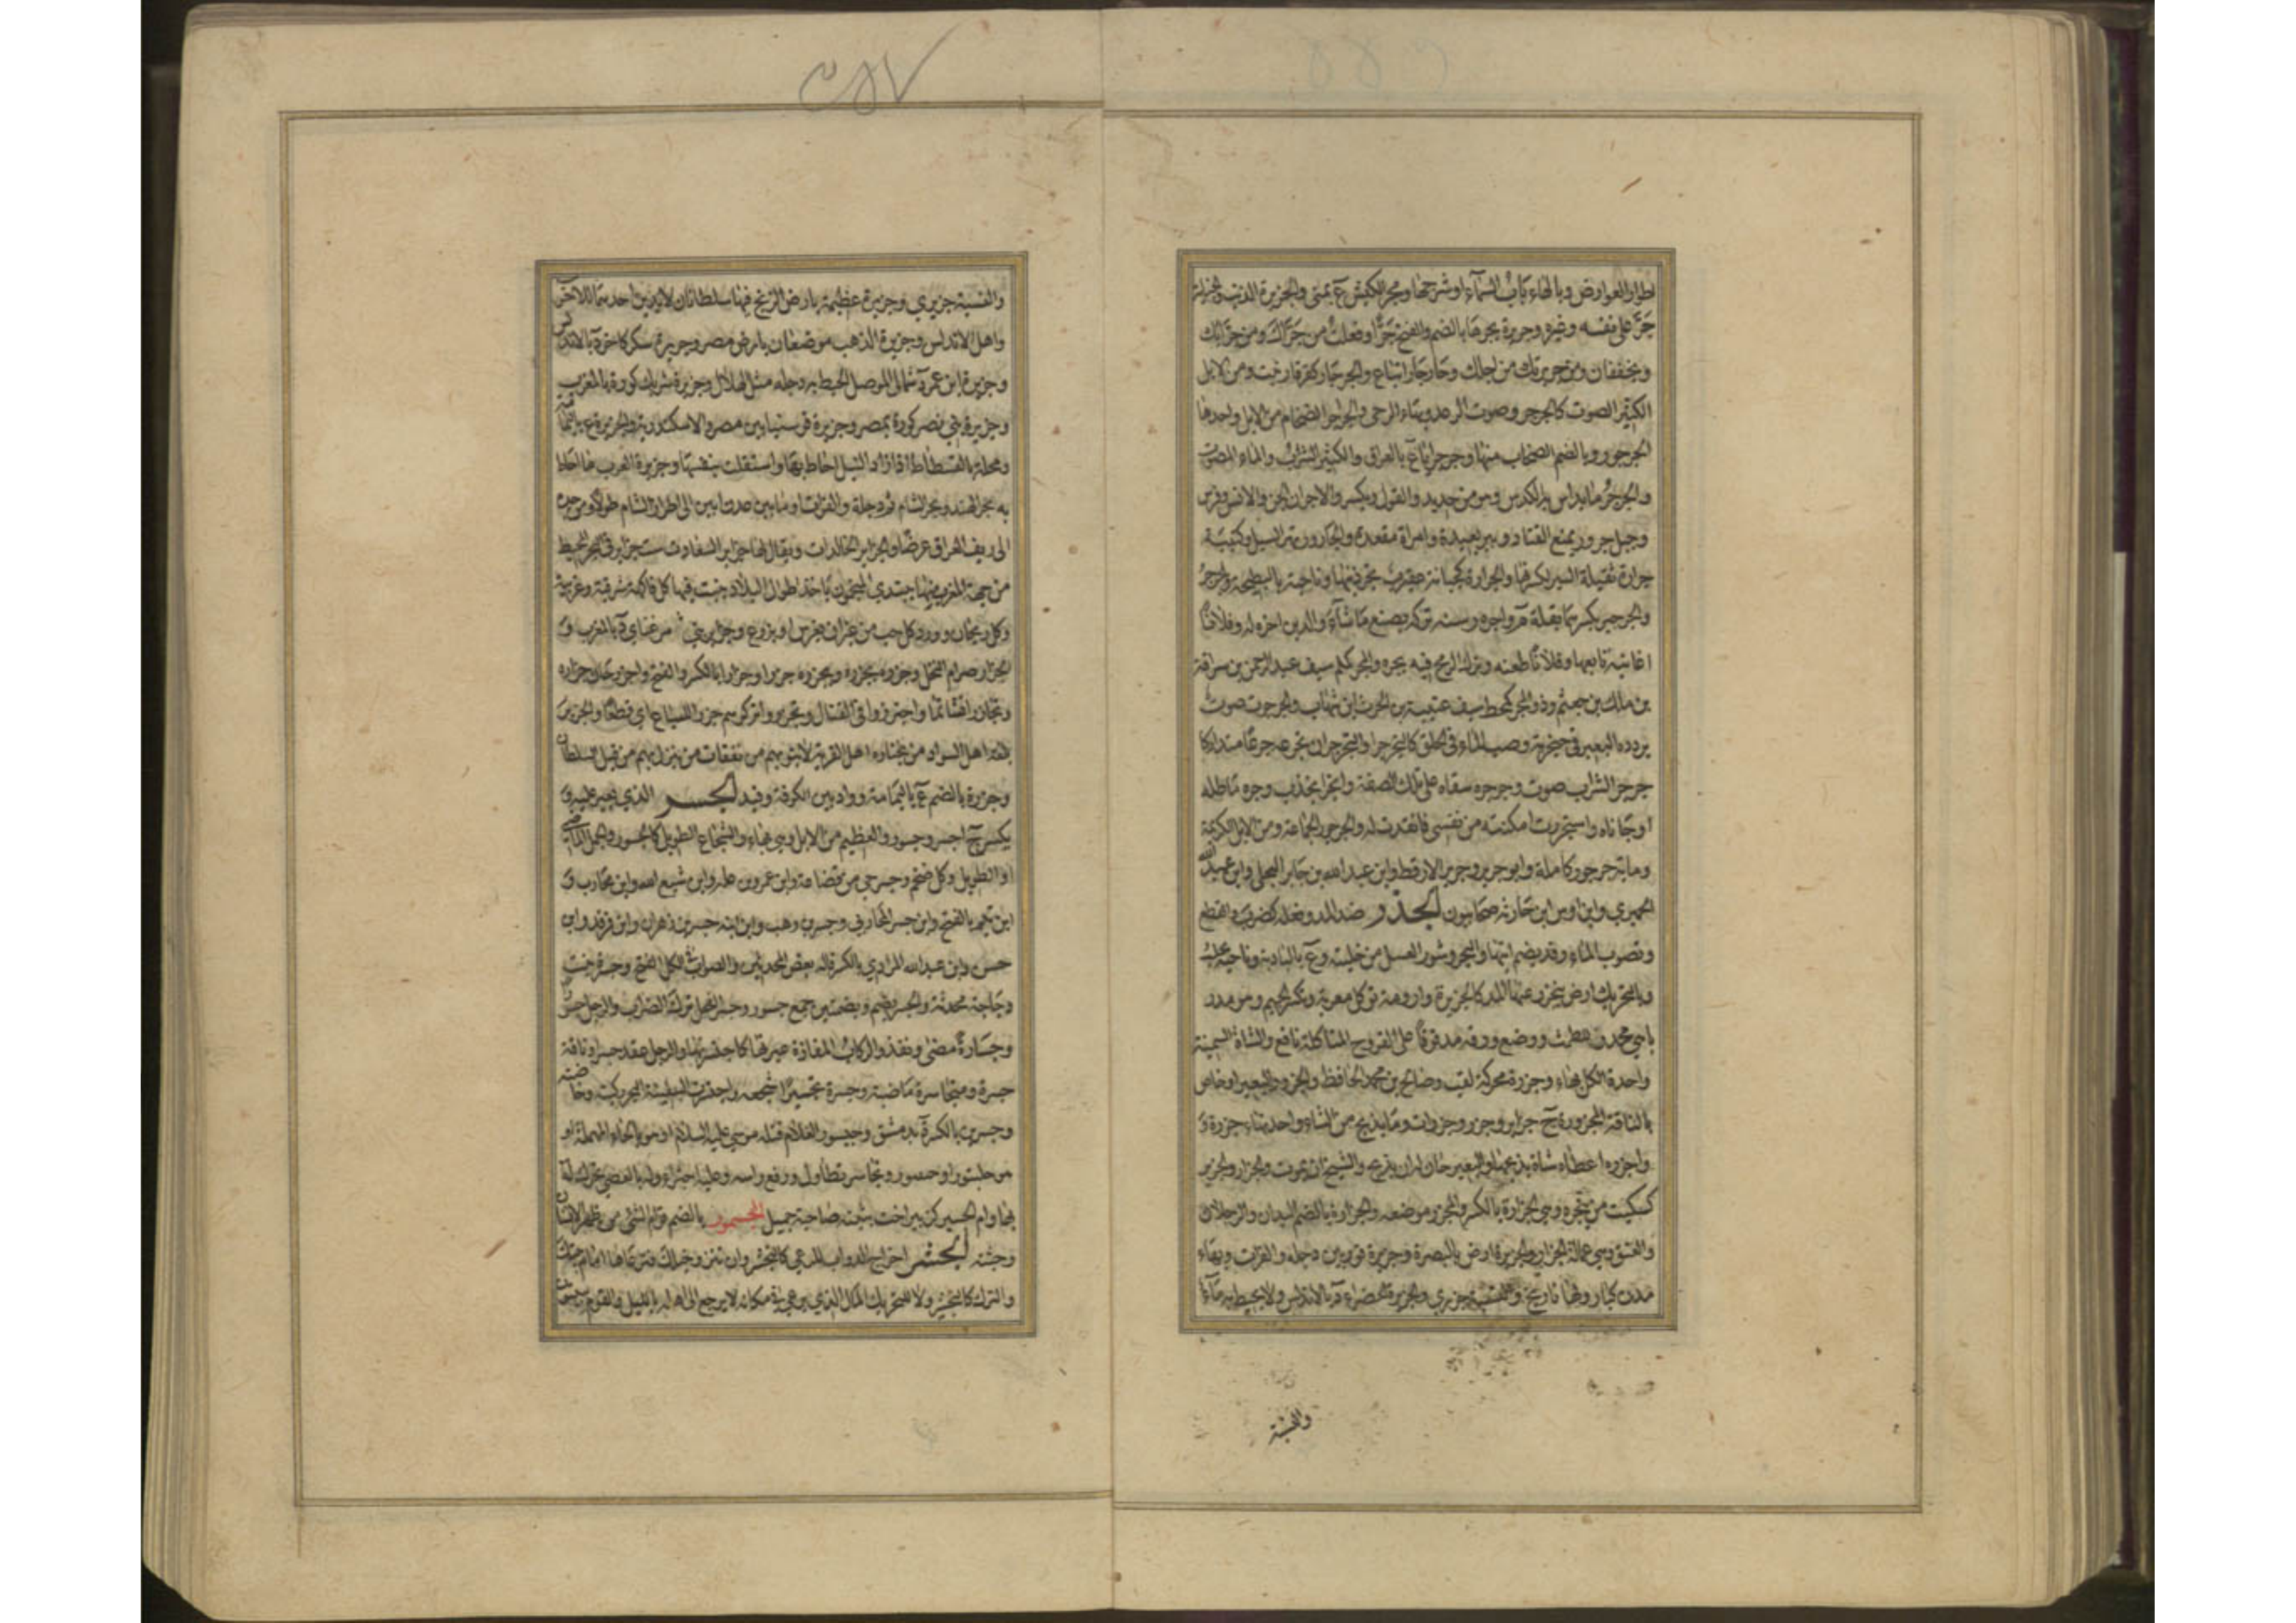 جر على نفسه وغيره وجريرة يجرها بالضم والفتح جرا وفعلت من جراك ومن جرائك
ويخففان ومن جريرتك من اجلك وحار جار اتباع والجرجار كقرقار نبت ومن الابل
الكثير الصوت كالجرجر وصوت الرعد وبتاء الرحى والجراجر الضخام من الابل واحدها
الجرجور وبالضم الصخاب منها وجرجرايا ع بالعراق والكثير الشراب والماء المصوت
والجرجر ما يداس به الكدس وهو من حديد والفول ويكسر والاجران الجن والانس وفرس
وجمل جرور يمنع القياد وبير بعيدة وامراة مقعدة والجارور نهر السيل وكتيبة
جرارة ثقيلة السير لكثرتها والجرارة كجبانة عقيرب تجر ذنبها وناحية بالبطيحة والجرجر
والجرجير بكسرهما بقلة م واجره رسنه تركه يصنع ما شاء والدين اخره له وفلانا
اغانيه تابعها وفلانا طعنه وترك الرمح فيه يجره والمجر كملم سيف عبد الرحمن بن سراقة
بن مالك بن جعشم وذو المجر كمحط سيف عتيبة بن الحرث بن شهاب والجرجرة صوت
يردده البعير في حنجرته وصب الماء في الحلق كالتجرجر والتجرجر ان تجرعه جرعا متداركا
جرجر الشراب صوت وجرجره سقاه على تلك الصفة وانجر انجذب وجاره ماطله
او حاباه واستجررت له امكنته من نفسي فانقدت له والجرجور الجماعة ومن الابل الكريمة
ومائة جرجور كاملة وابو جرير وجرير الارقط وابن عبد الله بن جابر البجلي وابن عبد الله
الحميري وابن اوس ابن حارثة صحابيون الجزر ضد المد وفعله كضرب والقطع
ونضوب الماء وقد يضم آتيهما والبحر وشور العسل من خليته وع بالبادية وناحية بحلب
وبالتحريك ارض ينجزر عنها المد كالجزيرة وارومة تؤكل معربة وتكسر الجيم وهو مدر
باهي محدر للطمث ووضع ورقه مدقوقا على القروح المتاكلة نافع والشاة السمينة
واحدة الكل بهاء وجزرة محركة لقب صالح بن محمد الحافظ والجزور البعير او خاص
بالناقة المجزورة ج جزاير وجزر وجزرات وما يذبح من الشاء واحدته جزرة و
واجزره اعطاه شاة يذبحها والبعير حان له ان يذبح والشيخ ان يموت والجزار والجزير
كسكيت من ينحره وهي الجزارة بالكسر والمجزر موضعه والجزارة بالضم اليدان والرجلان
والعنق وهي عمالة الجزار والجزيرة ارض بالبصرة وجزيرة قور بين دجلة والفرات وبها
مدن كبار ولها تاريخ والنسبة جزري والجزيرة الخضراء د بالاندلس ولا يحيط به ماء
والنسبة
والنسبة جزيري وجزيرة عظيمة بارض الزنج فيها سلطانان لا يدين احدهما للاخر
واهل الاندلس وجزيرة الذهب موضعان بارض مصر وجزيرة سكر كاخر د بالاندلس
وجزيرة ابن عمر د شمالي الموصل يحيط به دجلة مثل الهلال وجزيرة شريك كورة بالمغرب
وجزيرة بني نصر كورة بمصر وجزيرة قوسنيا بين مصر والاسكندرية والجزيرة ع باليمامة
ومحلة بالفسطاط اذا زاد النيل احاط بها واستقلت بنفسها وجزيرة العرب ما احاط
به بحر الهند وبحر الشام ثم دجلة والفرات او ما بين عدن ابين الى اطراف الشام طولا ومن جدة
الى ريف العراق عرضا والجزاير الخالدات ويقال لها جزاير السعادت ست جزاير في البحر المحيط
من جهة المغرب منها يبتدي المنجمون باخذ اطوال البلاد ينبت فيها كل فاكهة شرقية وغربية
وكل ريحان وورد كل حب من غير ان يغرس او يزرع وجزاير بني مرغناي د بالمغرب و
الجزار صرام النخل وجزره يجزره ويجزره جزرا وجزارا بالكسر والفتح واجزر حان جزاره
وتجازرا تشاتما واجتزروا في القتال وتجزروا تركوهم جزرا للسباع اي قطعا والجزير
بلغة اهل السواد من يختاره اهل القرية لما ينوبهم من نفقات من ينزل بهم من قبل السلطان
وجزرة بالضم ع باليمامة وواد بين الكوفة وفيد الجسر الذي يعبر عليه و
يكسر ج اجسر وجسور والعظيم من الابل وهي بهاء والشجاع الطويل كالجسور والجمل الماضي
او الطويل وكل ضخم وجسر حي من قضاعة وابن عمرو بن علة وابن شيع الله وابن محارب و
ابن تيم بالفتح وابن جسر المحاربي وجسر بن وهب وابن ابنه جسر بن زهران وابن فرقد وابن
حسن وابن عبد الله المرادي بالكسر قاله بعض المحدثين والصواب في الكل الفتح وجسرة بنت
دجاجة محدثة والجسر بضم وبضمتين جمع جسور وجسر الفحل ترك الضراب والرجل جسورا
وجسارة مضى ونفذ والركاب المفازة عبرتها كاجتسرتها والرجل عقد جسرا وناقة
جسرة ومتجاسرة ماضية وجسره تجسيرا شجعه واجتسرت السفينة البحر ركبته وخاضته
وجسرين بالكسر ة بدمشق وجيسور الغلام قتله موسى عليه السلام او هو بالحاء المهملة او
هو جلبتور او جنبتور وتجاسر تطاول ورفع راسه وعليه اجترا وله بالعصى تحرك له
بها وام الجسير كزبير اخت بثينة صاحبة جميل الجسمور بالضم قوام الشيء من ظهر الانسان
وجثته الجشر اخراج الدواب للرعي كالتجشير وان تنزو خيلك فترعاها امام بيتك
والترك كالتجشير وبالتحريك المال الذي يرعى في مكانه لا يرجع الى اهله بالليل والقوم يبيتون